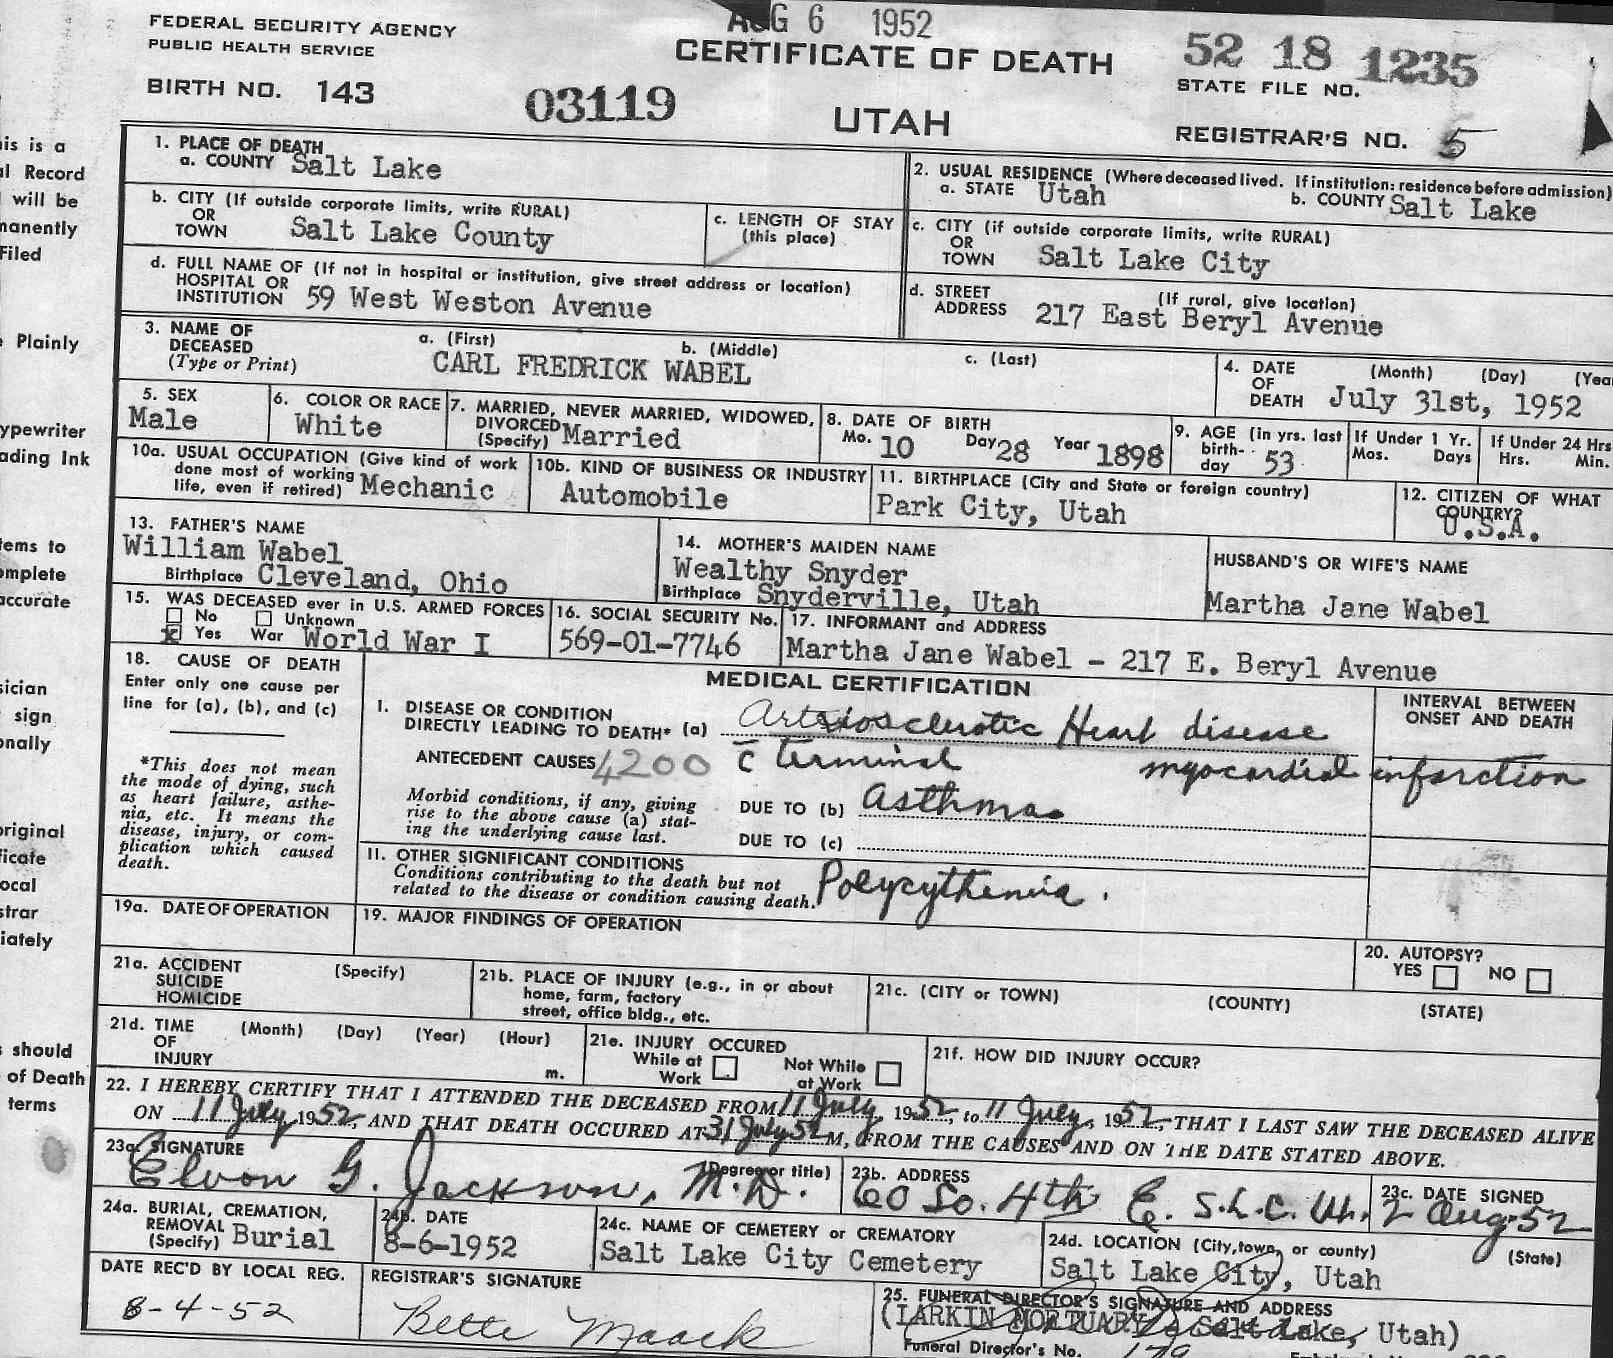 AUG 6 1952
FEDERAL SECURITY AGENCY
PUBLIC HEALTH SERVICE
CERTIFICATE OF DEATH
52 18 1235
STATE FILE NO.
BIRTH NO. 143
03119
UTAH
REGISTRAR'S NO. 5
1. PLACE OF DEATH
a. COUNTY Salt Lake
2. USUAL RESIDENCE (Where deceased lived. If institution: residence before admission)
a. STATE Utah b. COUNTY Salt Lake
b. CITY (If outside corporate limits, write RURAL)
OR
TOWN Salt Lake County
c. LENGTH OF STAY
(this place)
c. CITY (if outside corporate limits, write RURAL)
OR
TOWN Salt Lake City
d. FULL NAME OF (If not in hospital or institution, give street address or location)
HOSPITAL OR
INSTITUTION 59 West Weston Avenue
d. STREET (If rural, give location)
ADDRESS 217 East Beryl Avenue
3. NAME OF DECEASED
(Type or Print)
a. (First) b. (Middle) c. (Last)
CARL FREDRICK WABEL
4. DATE (Month) (Day) (Yea
OF
DEATH July 31st, 1952
5. SEX
Male
6. COLOR OR RACE
White
7. MARRIED, NEVER MARRIED, WIDOWED,
DIVORCED
(Specify) Married
8. DATE OF BIRTH
Mo. 10 Day 28 Year 1898
9. AGE (in yrs. last
birth-
day 53
If Under 1 Yr.
Mos. Days
If Under 24 Hrs
Hrs. Min.
10a. USUAL OCCUPATION (Give kind of work
done most of working
life, even if retired) Mechanic
10b. KIND OF BUSINESS OR INDUSTRY
Automobile
11. BIRTHPLACE (City and State or foreign country)
Park City, Utah
12. CITIZEN OF WHAT
COUNTRY?
U.S.A.
13. FATHER'S NAME
William Wabel
Birthplace Cleveland, Ohio
14. MOTHER'S MAIDEN NAME
Wealthy Snyder
Birthplace Snyderville, Utah
HUSBAND'S OR WIFE'S NAME
Martha Jane Wabel
15. WAS DECEASED ever in U.S. ARMED FORCES
No Unknown
x Yes War World War I
16. SOCIAL SECURITY No.
569-01-7746
17. INFORMANT and ADDRESS
Martha Jane Wabel - 217 E. Beryl Avenue
18. CAUSE OF DEATH
Enter only one cause per
line for (a), (b), and (c)
*This does not mean
the mode of dying, such
as heart failure, asthe-
nia, etc. It means the
disease, injury, or com-
plication which caused
death.
MEDICAL CERTIFICATION
INTERVAL BETWEEN
ONSET AND DEATH
I. DISEASE OR CONDITION
DIRECTLY LEADING TO DEATH* (a) Arteriosclerotic Heart disease
ANTECEDENT CAUSES 4200 c̄ terminal myocardial infarction
Morbid conditions, if any, giving
rise to the above cause (a) stat-
ing the underlying cause last.
DUE TO (b) Asthma
DUE TO (c)
II. OTHER SIGNIFICANT CONDITIONS
Conditions contributing to the death but not
related to the disease or condition causing death. Polycythemia.
19a. DATE OF OPERATION
19. MAJOR FINDINGS OF OPERATION
20. AUTOPSY?
YES NO
21a. ACCIDENT (Specify)
SUICIDE
HOMICIDE
21b. PLACE OF INJURY (e.g., in or about
home, farm, factory
street, office bldg., etc.
21c. (CITY or TOWN) (COUNTY) (STATE)
21d. TIME (Month) (Day) (Year) (Hour)
OF
INJURY m.
21e. INJURY OCCURED
While at Work Not While at Work
21f. HOW DID INJURY OCCUR?
22. I HEREBY CERTIFY THAT I ATTENDED THE DECEASED FROM 11 July, 1952, to 11 July, 1952, THAT I LAST SAW THE DECEASED ALIVE
ON 11 July 1952, AND THAT DEATH OCCURED AT 31 July 52 M, FROM THE CAUSES AND ON THE DATE STATED ABOVE.
23a. SIGNATURE (Degree or title)
Elvon G. Jackson, M.D.
23b. ADDRESS
60 So. 4th E. S.L.C. Ut.
23c. DATE SIGNED
2 Aug 52
24a. BURIAL, CREMATION,
REMOVAL
(Specify) Burial
24b. DATE
8-6-1952
24c. NAME OF CEMETERY or CREMATORY
Salt Lake City Cemetery
24d. LOCATION (City, town, or county) (State)
Salt Lake City, Utah
DATE REC'D BY LOCAL REG.
8-4-52
REGISTRAR'S SIGNATURE
Bette Maack
25. FUNERAL DIRECTOR'S SIGNATURE AND ADDRESS
(LARKIN MORTUARY, Salt Lake, Utah)
Funeral Director's No. 179
his is a
al Record
will be
manently
Filed
Plainly
ypewriter
ading Ink
tems to
omplete
accurate
sician
sign
onally
original
ficate
ocal
strar
iately
should
of Death
terms